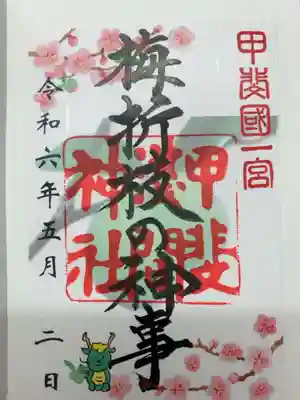 甲斐國一宮
梅折枝の神事
神社
令和六年五月 二日